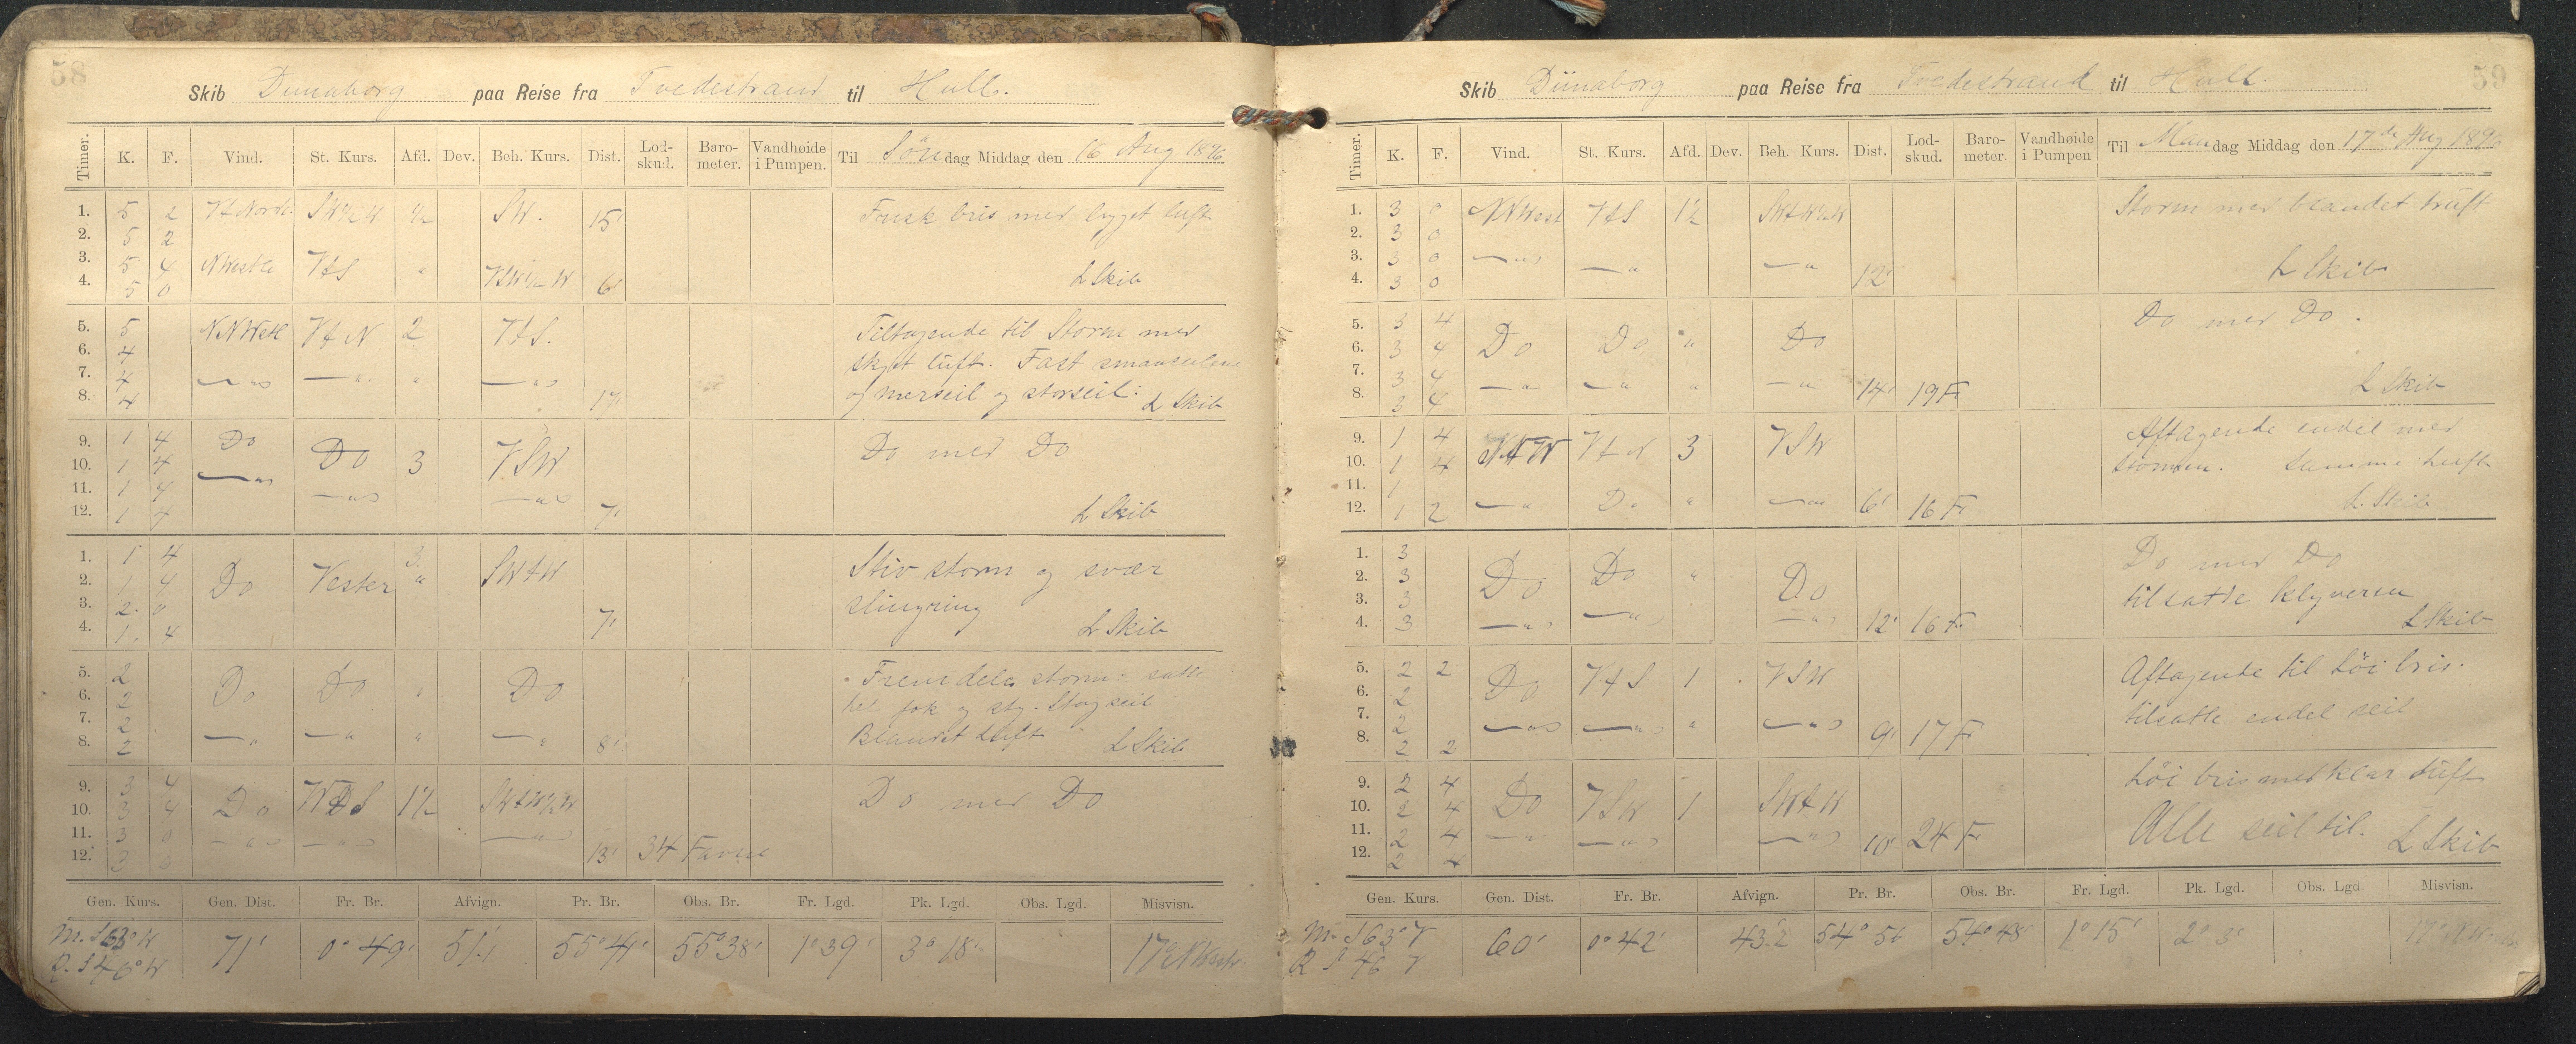 58
Skib Dünaborg paa Reise fra Tvedestrand til Hull.
Timer. K. F. Vind. St. Kurs. Afd. Dev. Beh. Kurs. Dist. Lod-skud. Baro-meter. Vandhøide i Pumpen. Til Søndag Middag den 16 Aug 1896
1. 5 2 SW½W ½ SW. 15' Frisk bris med bygget luft
2. 5 2
3. 5 4 VtS "
4. 5 0 6' L Skib
5. 5 NNWest VtN 2 VtS. Tiltagende til Storm med
6. 4 skyet luft. Fast
7. 4 —"— —"— " —"—
8. 4 17' og merseil og storseil: L Skib
9. 1 4 Do Do 3 VSW Do med Do
10. 1 4 —"—
11. 1 4 —"— —"—
12. 1 4 7' L Skib
1. 1 4 Do Vester 3. SWtW Stiv storm og svær
2. 1 4 "
3. 2. 0 slingring
4. 1. 4 7' L Skib
5. 2 Do Do " Do Fremdeles storm: satte
6. 2 fok og Stagseil
7. 2
8. 2 —"— —"— " —"— 8' Blandet Luft L Skib
9. 3 4 Do 1½ SWtW½W Do med Do
10. 3 4
11. 3 0 —"— —"— —"—
12. 3 0 13' 34 Favne
Gen. Kurs. Gen. Dist. Fr. Br. Afvign. Pr. Br. Obs. Br. Fr. Lgd. Pk. Lgd. Obs. Lgd. Misvisn.
m. S 63° W 71' 0° 49' 51'.1 55° 41' 55° 38' 1° 39' 3° 18'
R. S 46° W
59
Skib Dünaborg paa Reise fra Tvedestrand til Hull.
Timer. K. F. Vind. St. Kurs. Afd. Dev. Beh. Kurs. Dist. Lod-skud. Baro-meter. Vandhøide i Pumpen Til Mandag Middag den 17de Aug 1896
1. 3 0 NNWest VtS 1½ SWtW½W Storm med blandet luft
2. 3 0
3. 3 0 —"— —"— —"—
4. 3 0 12' L Skib
5. 3 4 Do Do " Do Do med Do.
6. 3 4
7. 3 4
8. 3 4 —"— —"— " —"— 14' 19 F. L Skib
9. 1 4 VtN 3 VSW Aftagende endel med
10. 1 4 stormen. samme luft
11. 1
12. 1 2 —"— Do " —"— 6' 16 F. L. Skib
1. 3 Do Do " Do Do med Do
2. 3
3. 3 tilsatte klyveren
4. 3 —"— —"— —"— 12' 16 F. L Skib
5. 2 2 Do VtS 1 VSW Aftagende til Löi bris.
6. 2
7. 2 tilsatte endel seil
8. 2 2 —"— —"— " —"— 9' 17 F.
9. 2 4 Do VSW 1 SWtW Löi bris med klar Luft
10. 2 4
11. 2 4 Alle seil til.
12. 2 4 —"— —"— —"— 10' 24 F. L Skib
Gen. Kurs. Gen. Dist. Fr. Br. Afvign. Pr. Br. Obs. Br. Fr. Lgd. Pk. Lgd. Obs. Lgd. Misvisn.
M. S 63° V 60' 0° 42' 43.2 54° 56 54° 48' 1° 15' 2° 3'
R S 46 V